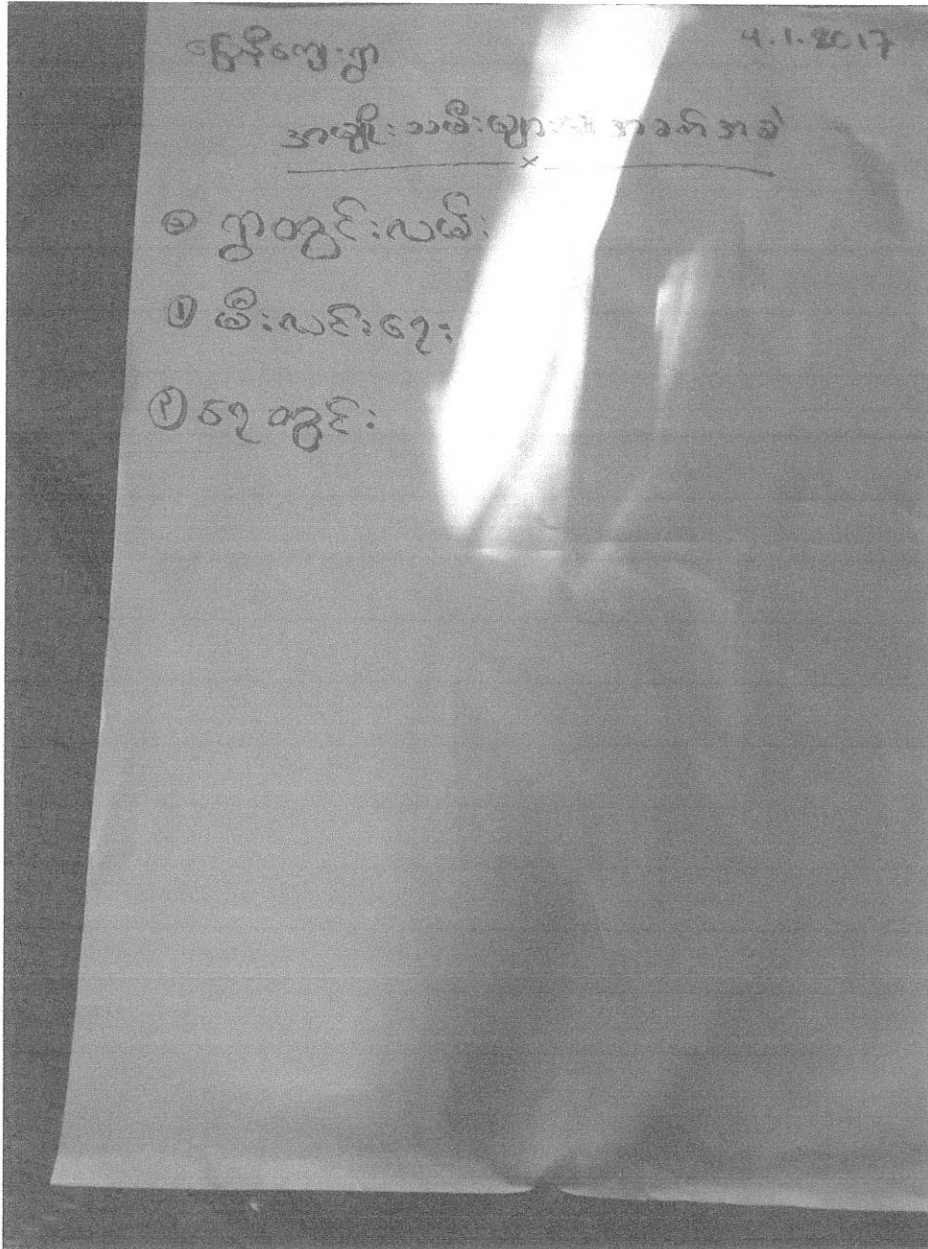 မြေနီကျေးရွာ
4.1.2017
အမျိုးသမီးများ၏ အခက်အခဲ
③ ရွာတွင်းလမ်း
① မီးလင်းရေး
② ရေတွင်း